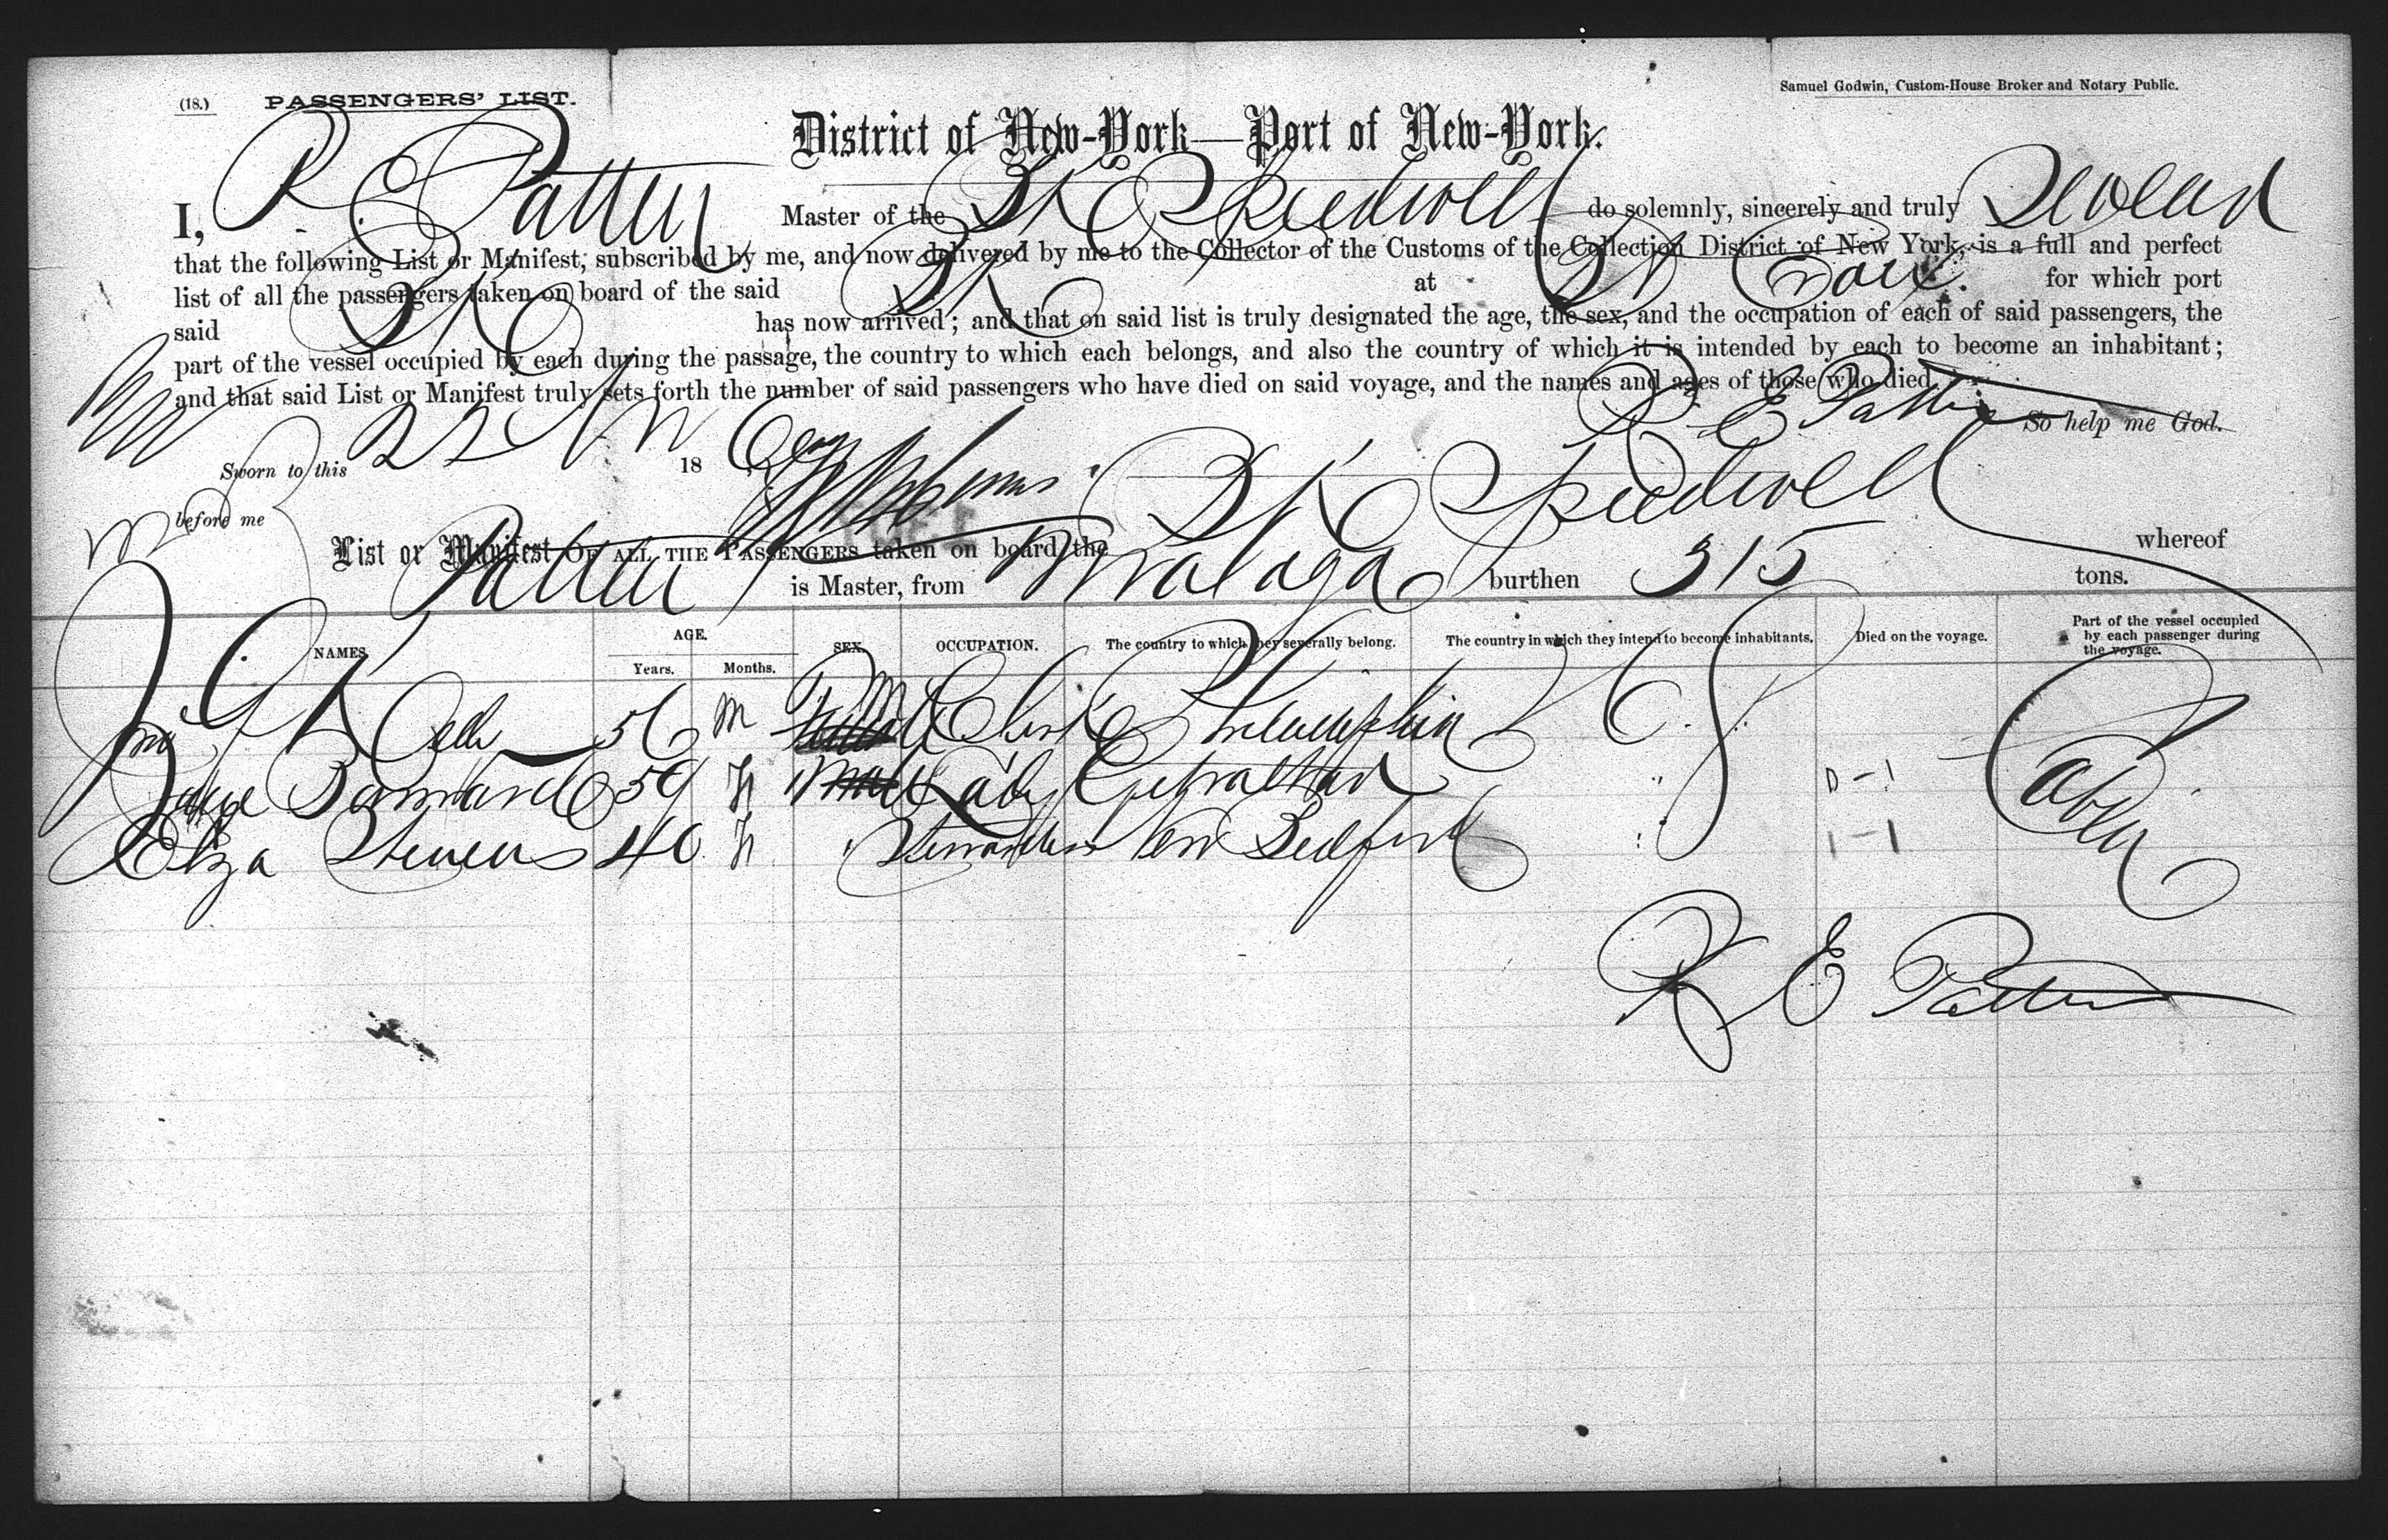 (18.) PASSENGERS' LIST.
Samuel Godwin, Custom-House Broker and Notary Public.
District of New-York—Port of New-York.
I, R E Patten Master of the Bk Speedwell do solemnly, sincerely and truly Swear
that the following List or Manifest, subscribed by me, and now delivered by me to the Collector of the Customs of the Collection District of New York, is a full and perfect
list of all the passengers taken on board of the said Bk at for which port
said Bk has now arrived; and that on said list is truly designated the age, the sex, and the occupation of each of said passengers, the
part of the vessel occupied by each during the passage, the country to which each belongs, and also the country of which it is intended by each to become an inhabitant;
and that said List or Manifest truly sets forth the number of said passengers who have died on said voyage, and the names and ages of those who died.
R E Patten So help me God.
Sworn to this 22 18
before me
List or Manifest OF ALL THE PASSENGERS taken on board the Bk Speedwell whereof
Patten is Master, from Malaga burthen 315 tons.
NAMES. AGE. SEX. OCCUPATION. The country to which they severally belong. The country in which they intend to become inhabitants. Died on the voyage. Part of the vessel occupied by each passenger during the voyage.
Years. Months.
56 M Philadelphia U S
Barnard 59 F Lady Gibraltar "
Eliza Stevens 40 F Stewardess New Bedford " Cabin
R E Patten